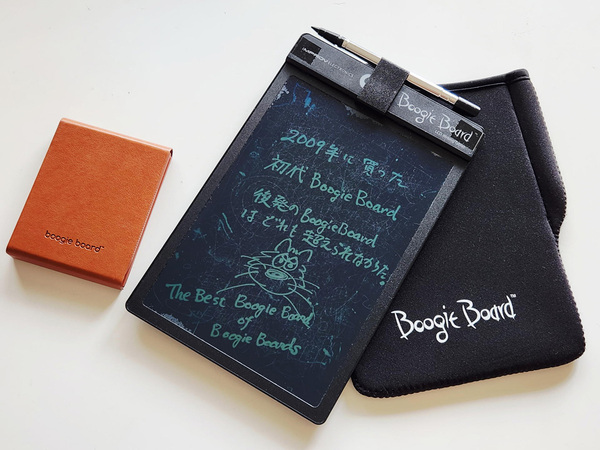 boogie board™
Boogie Board™
2009年に買った
初代 Boogie Board
後発のBoogieBoard
はどれも超えられなかった。
The Best Boogie Board
of
Boogie Boards
Boogie Board™